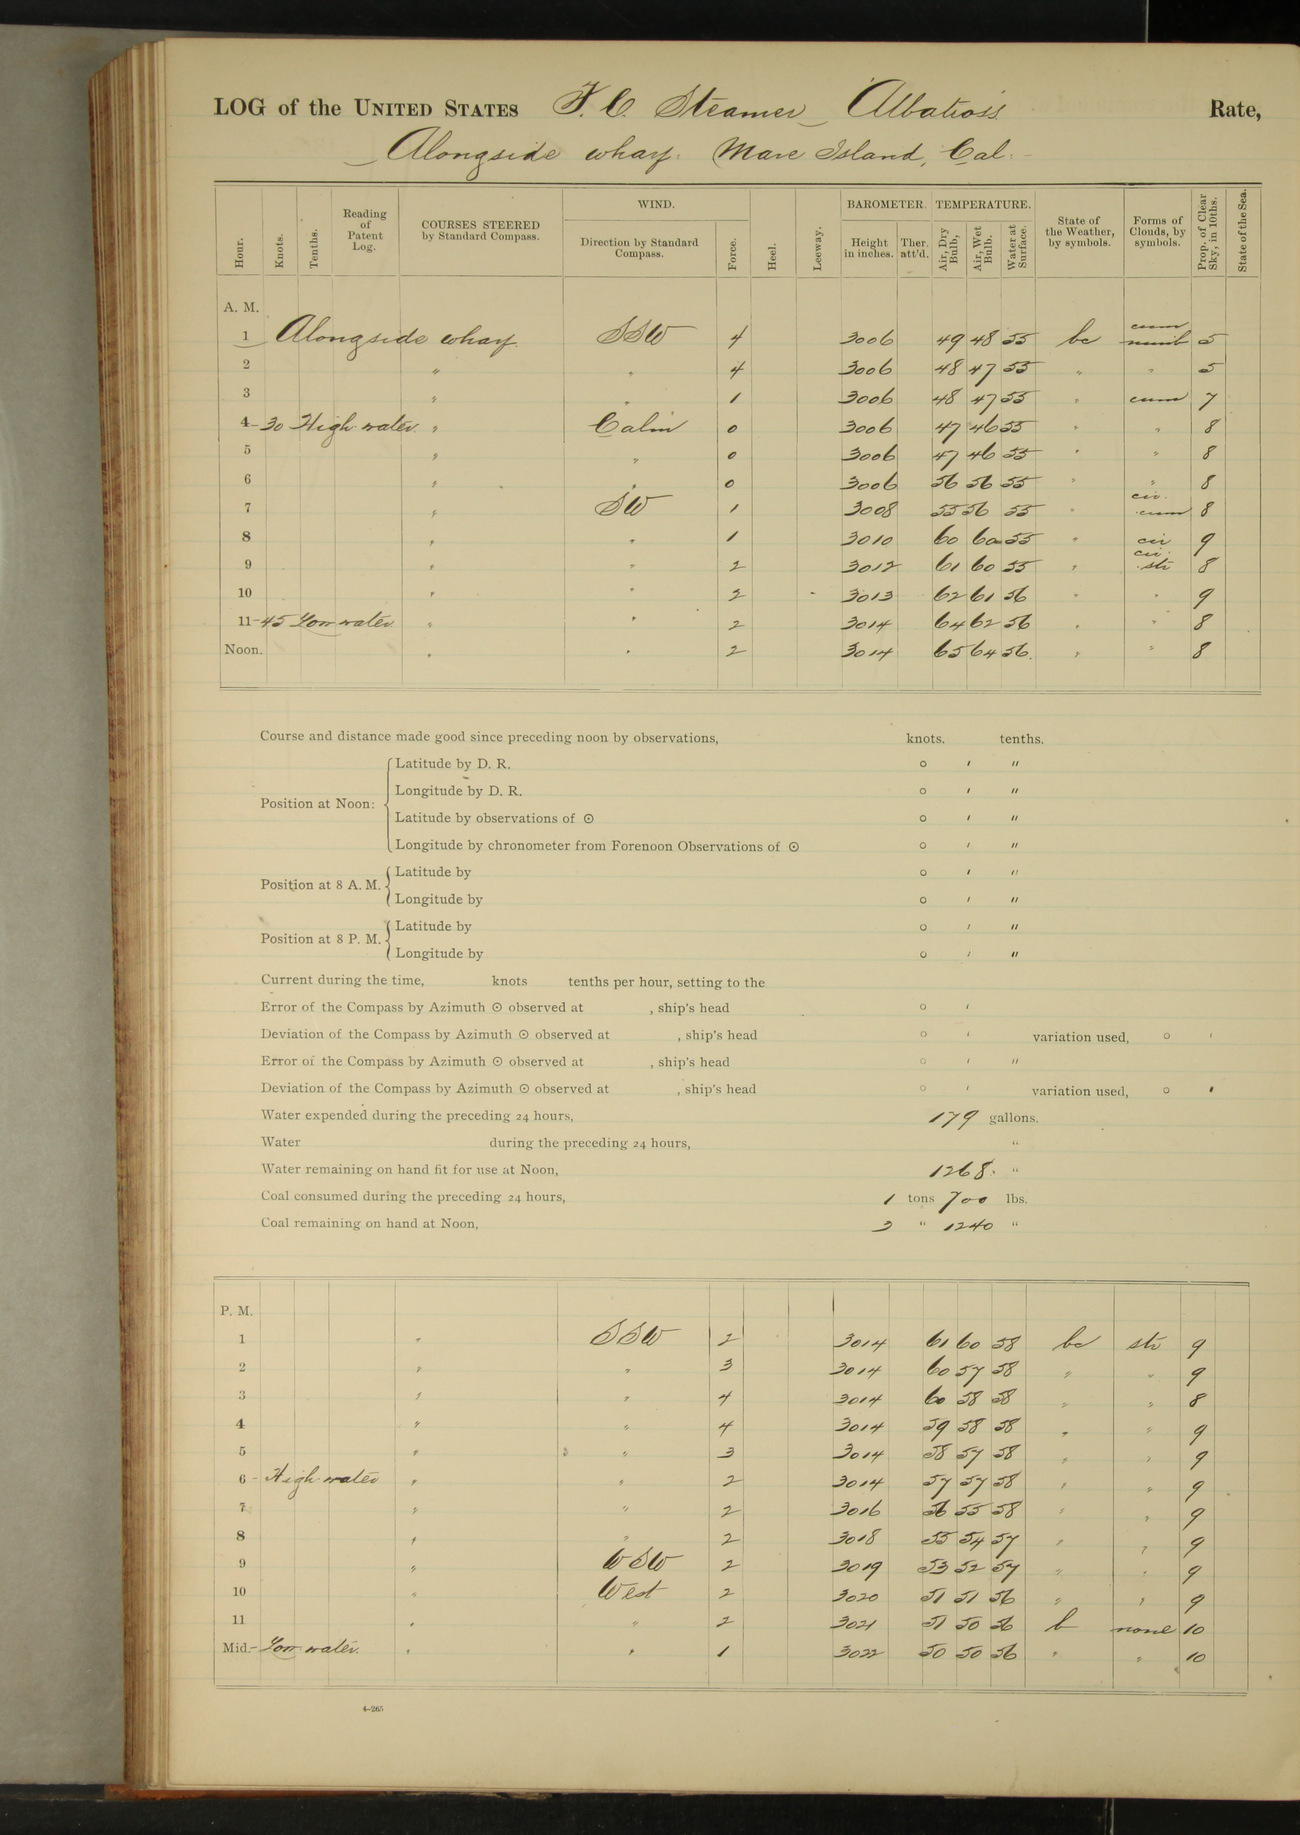 LOG of the UNITED STATES F. C. Steamer Albatross Rate,
Alongside wharf. Mare Island, Cal.
Hour. Knots. Tenths. Reading of Patent Log. COURSES STEERED by Standard Compass. WIND. Direction by Standard Compass. Force. Heel. Leeway. BAROMETER. Height in inches. Ther. att'd. TEMPERATURE. Air, Dry Bulb, Air, Wet Bulb. Water at Surface. State of the Weather, by symbols. Forms of Clouds, by symbols. Prop. of Clear Sky, in 10ths. State of the Sea.
A. M.
1 Alongside wharf. SSW 4 3006 49 48 55 bc cum nimb 5
2 " " 4 3006 48 47 55 " " 5
3 " " 1 3006 48 47 55 " cum 7
4-30 High water " Calm 0 3006 47 46 55 " " 8
5 " " 0 3006 47 46 55 " " 8
6 " " 0 3006 56 56 55 " " 8
7 " SW 1 3008 55 56 55 " cir. cum 8
8 " " 1 3010 60 60 55 " cir 9
9 " " 2 3012 61 60 55 " cir. str 8
10 " " 2 3013 62 61 56 " " 9
11-45 Low water " " 2 3014 64 62 56 " " 8
Noon. " " 2 3014 65 64 56. " " 8
Course and distance made good since preceding noon by observations, knots. tenths.
Position at Noon: Latitude by D. R. ° ′ ″
Longitude by D. R. ° ′ ″
Latitude by observations of ☉ ° ′ ″
Longitude by chronometer from Forenoon Observations of ☉ ° ′ ″
Position at 8 A. M. Latitude by ° ′ ″
Longitude by ° ′ ″
Position at 8 P. M. Latitude by ° ′ ″
Longitude by ° ′ ″
Current during the time, knots tenths per hour, setting to the
Error of the Compass by Azimuth ☉ observed at , ship's head ° ′
Deviation of the Compass by Azimuth ☉ observed at , ship's head ° ′ variation used, ° ′
Error of the Compass by Azimuth ☉ observed at , ship's head ° ′ ″
Deviation of the Compass by Azimuth ☉ observed at , ship's head ° ′ variation used, ° ′
Water expended during the preceding 24 hours, 179 gallons.
Water during the preceding 24 hours, "
Water remaining on hand fit for use at Noon, 1268. "
Coal consumed during the preceding 24 hours, 1 tons 700 lbs.
Coal remaining on hand at Noon, 3 " 1240 "
P. M.
1 " SSW 2 3014 61 60 58 bc str 9
2 " " 3 3014 60 57 58 " " 9
3 " " 4 3014 60 58 58 " " 8
4 " " 4 3014 59 58 58 " " 9
5 " " 3 3014 58 57 58 " " 9
6 - High water " " 2 3014 57 57 58 " " 9
7 " " 2 3016 56 55 58 " " 9
8 " " 2 3018 55 54 57 " " 9
9 " WSW 2 3019 53 52 57 " " 9
10 " West 2 3020 51 51 56 " " 9
11 " " 2 3021 51 50 56 b none 10
Mid.- Low water. " " 1 3022 50 50 56 " " 10
4-265